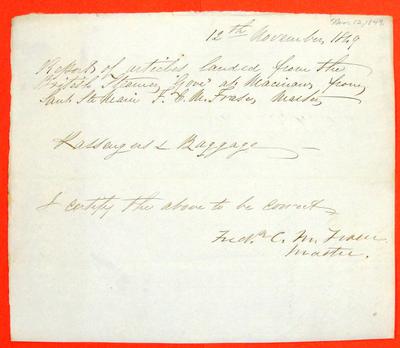 Nov. 12, 1849
12th November, 1849
Report of articles landed from the
British Steamer "Gore" at Macinaw, from
Sault Ste Marie F. C. M. Fraser, Master
Passengers & Baggage
I certify the above to be correct
Fredk. C. M. Fraser
Master.